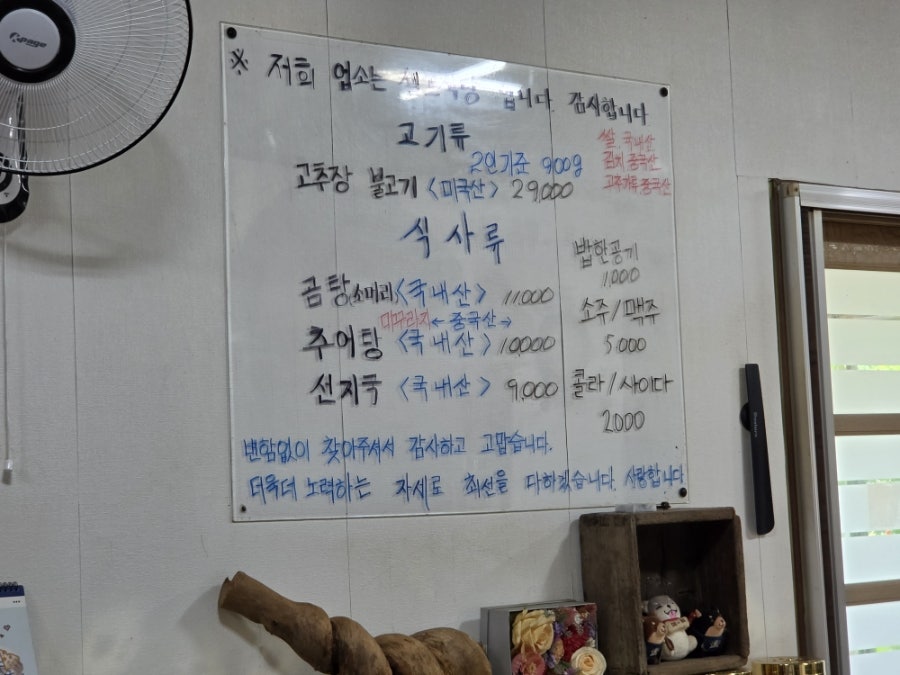 ※ 저희 업소는 니다. 감사합니다
고기류
2인기준 900g
고추장 불고기 <미국산> 29,000
쌀. 국내산
김치 중국산
고추가루 중국산
식사류
곰탕(소머리)<국내산> 11,000
미꾸라지 ← 중국산 →
추어탕 <국내산> 10,000
선지국 <국내산> 9,000
밥한공기
1,000
소주/맥주
5.000
콜라/사이다
2.000
변함없이 찾아주셔서 감사하고 고맙습니다.
더욱더 노력하는 자세로 최선을 다하겠습니다. 사랑합니다